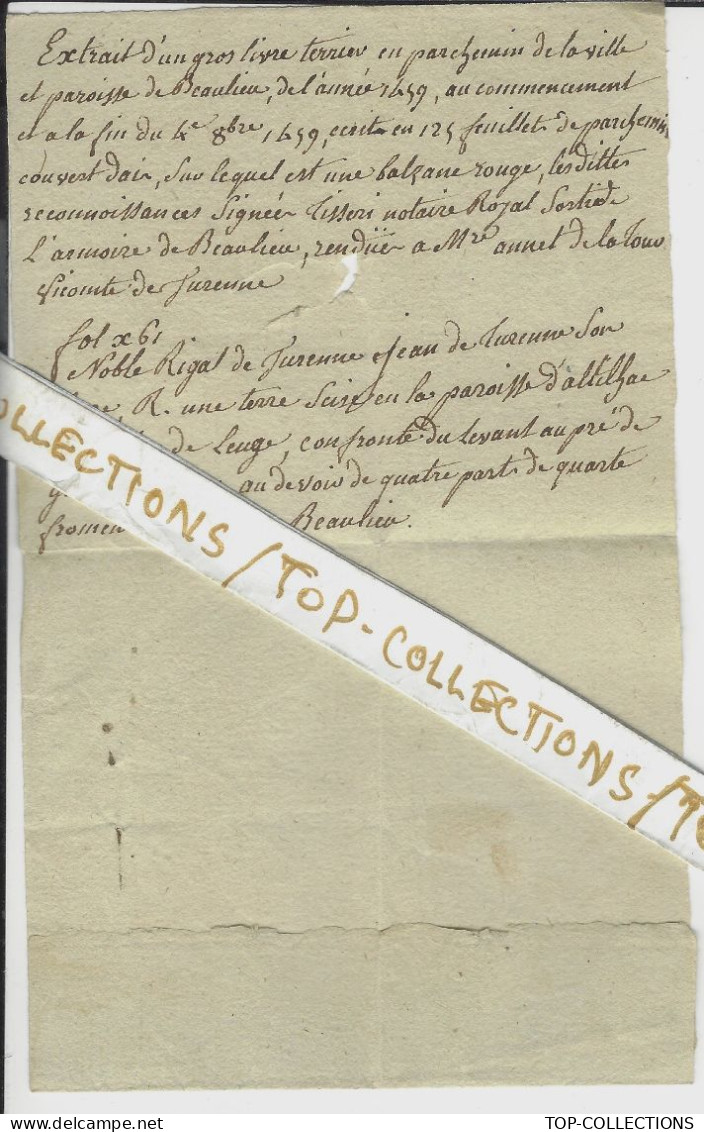 Extrait d'un gros livre terrier, en parchemin de la ville
et paroisse de Beaulieu, de l'année 1459, au commencement
et a la fin du 4e 8bre 1459, ecrit en 125 feuillets de parchemin
couvert dair, sur lequel est une balzane rouge, lesdittes
reconnoissances Signées Tisseri notaire Royal Sortie de
L'armoire de Beaulieu, rendües a Mre annet de la Tour
Vicomte de Turenne
fol x61
Noble Rigal de Turenne & jean de Turenne Son
R. une terre Scise en la paroisse d'altilhac
de Leuge, confronte du Levant au pré de
au devoir de quatre parts de quarte
Beaulieu.
COLLECTIONS / TOP-COLLECTIONS /
TOP-COLLECTIONS